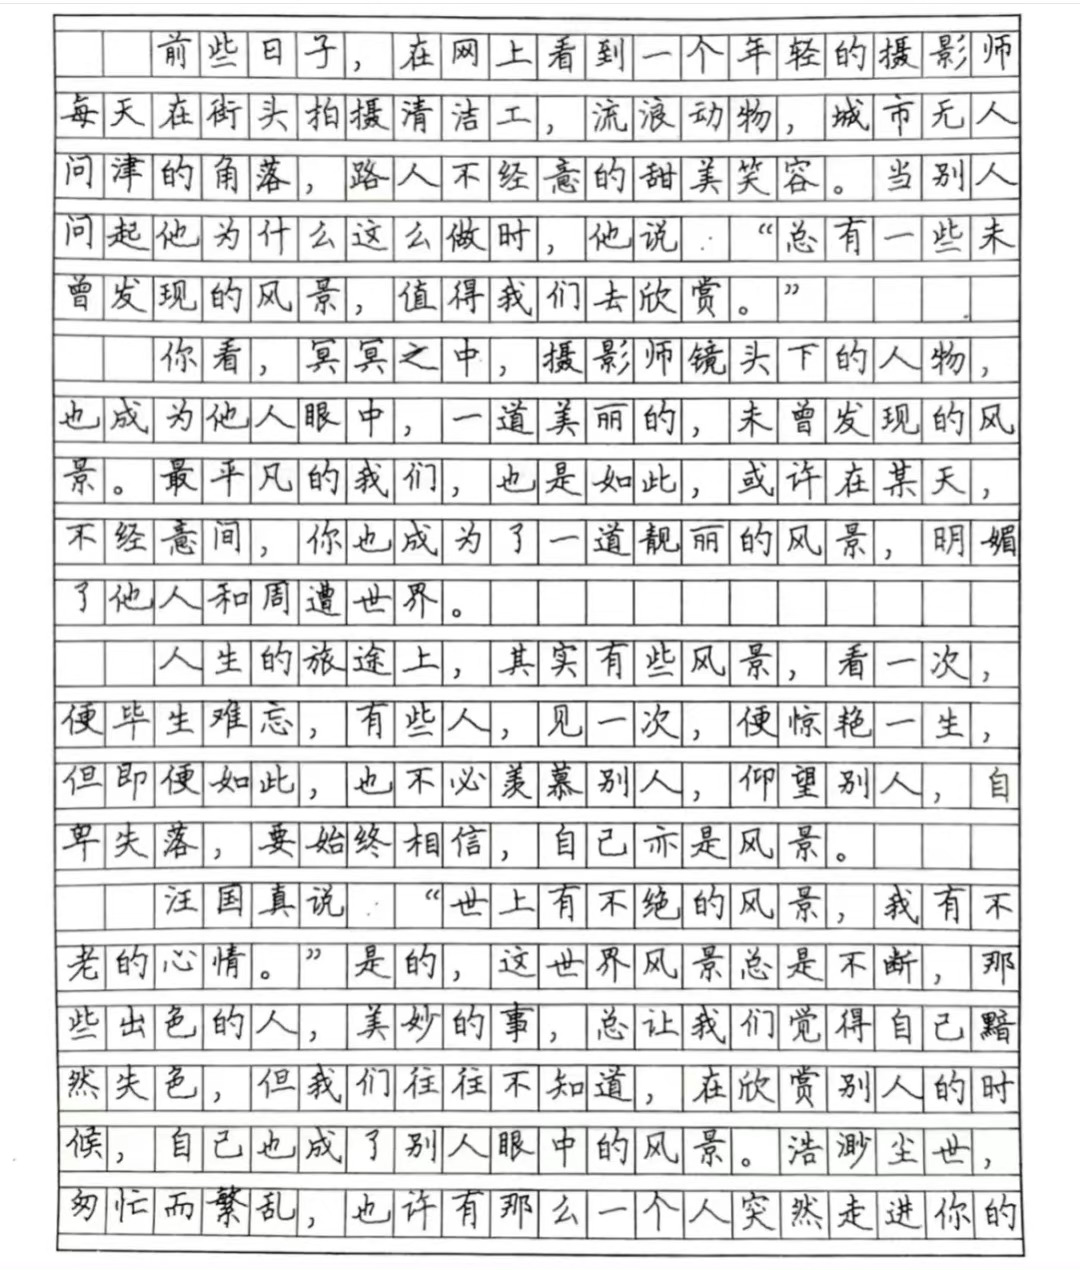 前些日子，在网上看到一个年轻的摄影师
每天在街头拍摄清洁工，流浪动物，城市无人
问津的角落，路人不经意的甜美笑容。当别人
问起他为什么这么做时，他说：“总有一些未
曾发现的风景，值得我们去欣赏。”
你看，冥冥之中，摄影师镜头下的人物，
也成为他人眼中，一道美丽的，未曾发现的风
景。最平凡的我们，也是如此，或许在某天，
不经意间，你也成为了一道靓丽的风景，明媚
了他人和周遭世界。
人生的旅途上，其实有些风景，看一次，
便毕生难忘，有些人，见一次，便惊艳一生，
但即便如此，也不必羡慕别人，仰望别人，自
卑失落，要始终相信，自己亦是风景。
汪国真说：“世上有不绝的风景，我有不
老的心情。”是的，这世界风景总是不断，那
些出色的人，美妙的事，总让我们觉得自己黯
然失色，但我们往往不知道，在欣赏别人的时
候，自己也成了别人眼中的风景。浩渺尘世，
匆忙而繁乱，也许有那么一个人突然走进你的